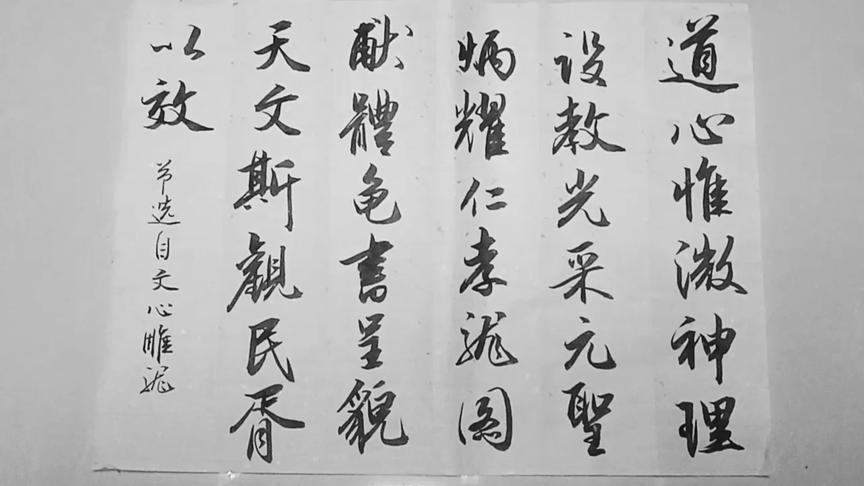 道心惟微神理
設教光采元聖
炳耀仁孝龍圖
獻體龜書呈貌
天文斯觀民胥
以效
节选自文心雕龍